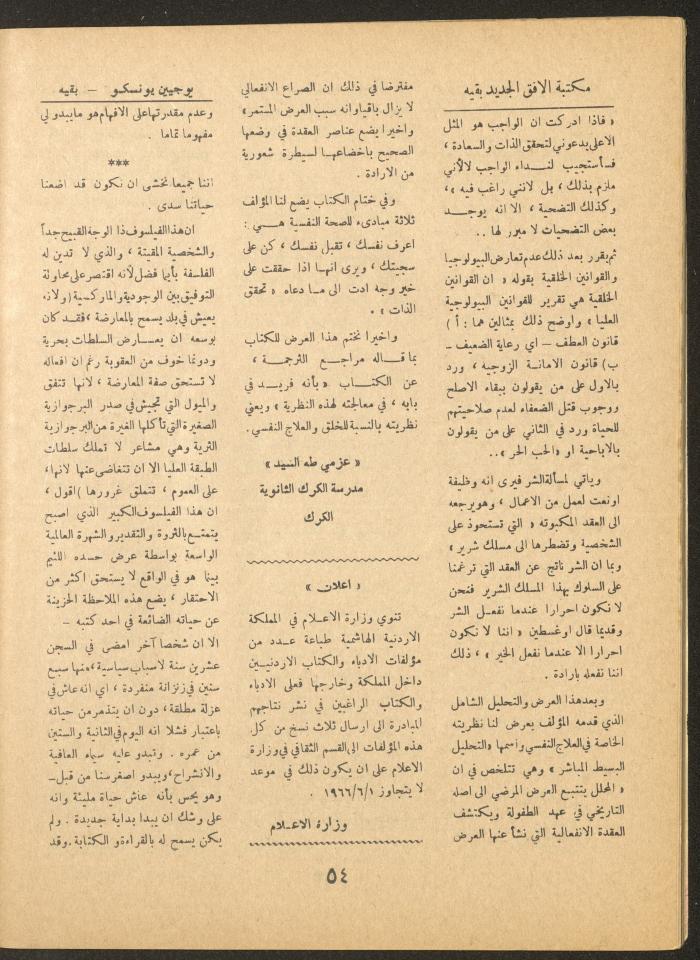 مكتبة الافق الجديد بقيه
« فاذا ادركت ان الواجب هو المثل
الاعلى يدعوني لتحقق الذات والسعادة ،
فسأستجيب لنداء الواجب لالأني
ملزم بذلك ، بل لانني راغب فيه » ،
وكذلك التضحية ، الا انه يوجد
بعض التضحيات لا مبرر لها ..
ثم يقرر بعد ذلك عدم تعارض البيولوجيا
والقوانين الخلقية بقوله « ان القوانين
الخلقية هي تقرير للقوانين البيولوجية
العليا » واوضح ذلك بمثالين هما : أ )
قانون العطف – اي رعاية الضعيف –
ب) قانون الامانة الزوجيه ، ورد
بالاول على من يقولون ببقاء الاصلح
ووجوب قتل الضعفاء لعدم صلاحيتهم
للحياة ورد في الثاني على من يقولون
بالاباحية او «الحب الحر » ..
ويأتي لمسألة الشر فيرى انه وظيفة
اونعت لعمل من الاعمال ، وهو يرجعه
الى العقد المكبوته « التي تستحوذ على
الشخصية وتضطرها الى مسلك شرير »
وبما ان الشر ناتج عن العقد التي ترغمنا
على السلوك بهذا المسلك الشرير فنحن
لا نكون احرارا عندما نفعل الشر
وقديما قال اوغسطين « اننا لا نكون
احرارا الا عندما نفعل الخير » ، ذلك
اننا نفعله بارادة .
وبعد هذا العرض والتحليل الشامل
الذي قدمه المؤلف يعرض لنا نظريته
الخاصة في العلاج النفسي واسمها «التحليل
البسيط المباشر » وهي تتلخص في ان
« المحلل يتتبع العرض المرضي الى اصله
التاريخي في عهد الطفولة ويكتشف
العقدة الانفعالية التي نشأ عنها العرض
مفترضا في ذلك ان الصراع الانفعالي
لا يزال باقيا وانه سبب العرض المستمر»
واخيرا يضع عناصر العقدة في وضعها
الصحيح باخضاعها لسيطرة شعورية
من الارادة .
وفي ختام الكتاب يضع لنا المؤلف
ثلاثة مبادىء للصحة النفسية هي :
اعرف نفسك ، تقبل نفسك ، كن على
سجيتك ، ويرى انها اذا حققت على
خير وجه ادت الى ما دعاه « تحقق
الذات » .
واخيرا نختم هذا العرض للكتاب
بما قاله مراجع الترجمة ،
عن الكتاب « بأنه فريد في
بابه ، في معالجته لهذه النظرية » ويعني
نظريته بالنسبة للخلق والعلاج النفسي .
« عزمي طه السيد »
مدرسة الكرك الثانوية
الكرك
« اعلان »
تنوي وزارة الاعلام في المملكة
الاردنية الهاشمية طباعة عدد من
مؤلفات الادباء والكتاب الاردنيين
داخل المملكة وخارجها فعلى الادباء
والكتاب الراغبين في نشر نتاجهم
المبادرة الى ارسال ثلاث نسخ من كل
هذه المؤلفات الى القسم الثقافي في وزارة
الاعلام على ان يكون ذلك في موعد
لا يتجاوز ١/٦/١٩٦٦ .
وزارة الاعلام
يوجيين يونسكو – بقيه
وعدم مقدرتها على الافهام هو ما يبدو لي
مفهوما تماما .
***
اننا جميعا نخشى ان نكون قد اضعنا
حياتنا سدى .
ان هذا الفيلسوف ذا الوجه القبيح جداً
والشخصية المقيتة ، والذي لا تدين له
الفلسفة بأيما فضل لأنه اقتصر على محاولة
التوفيق بين الوجودية والماركسية (ولانه
يعيش في بلد يسمح بالمعارضة ، فقد كان
بوسعه ان يعارض السلطات بحرية
ودونما خوف من العقوبة رغم ان افعاله
لا تستحق صفة المعارضة ، لانها تتفق
والميول التي تجيش في صدر البرجوازية
الصغيرة التي تأكلها الغيرة من البرجوازية
الثرية وهي مشاعر لا تملك سلطات
الطبقة العليا الا ان تتغاضى عنها لانها ،
على العموم ، تتملق غرورها ) اقول ،
ان هذا الفيلسوف الكبير الذي اصبح
يتمتع بالثروة والتقدير والشهرة العالمية
الواسعة بواسطة عرض حسده اللئيم
بينما هو في الواقع لا يستحق اكثر من
الاحتقار ، يضع هذه الملاحظة الحزينة
عن حياته الضائعة في احد كتبه –
الا ان شخصا آخر امضى في السجن
عشرين سنة لاسباب سياسية ، منها سبع
سنين في زنزانة منفردة ، اي انه عاش في
عزلة مطلقة ، دون ان يتذمر من حياته
باعتبار فشلا انه اليوم في الثانية والستين
من عمره . وتبدو عليه سياء العافية
والانشراح ، ويبدو اصغر سنا من قبل –
وهو يحس بأنه عاش حياة مليئة وانه
على وشك ان يبدا بداية جديدة . ولم
يكن يسمح له بالقراءة و الكتابة . وقد
٥٤